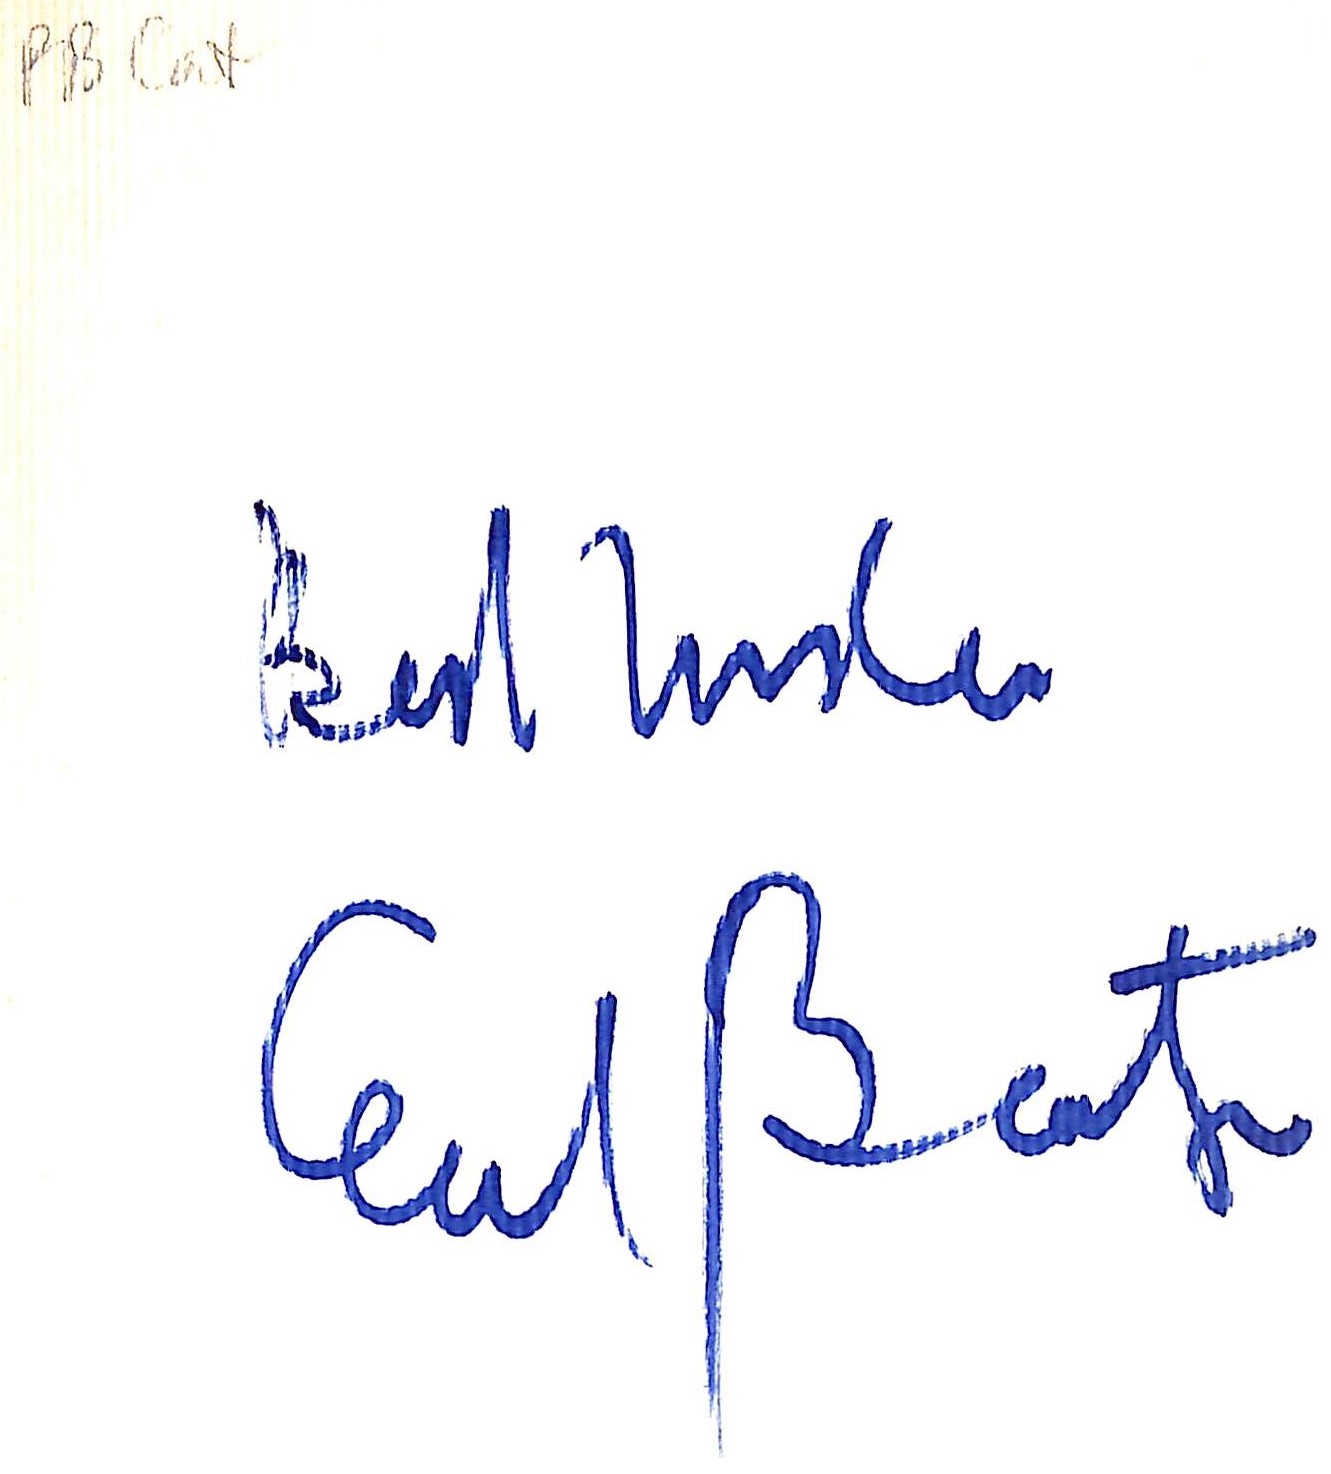 Best Wishes
Cecil Beaton